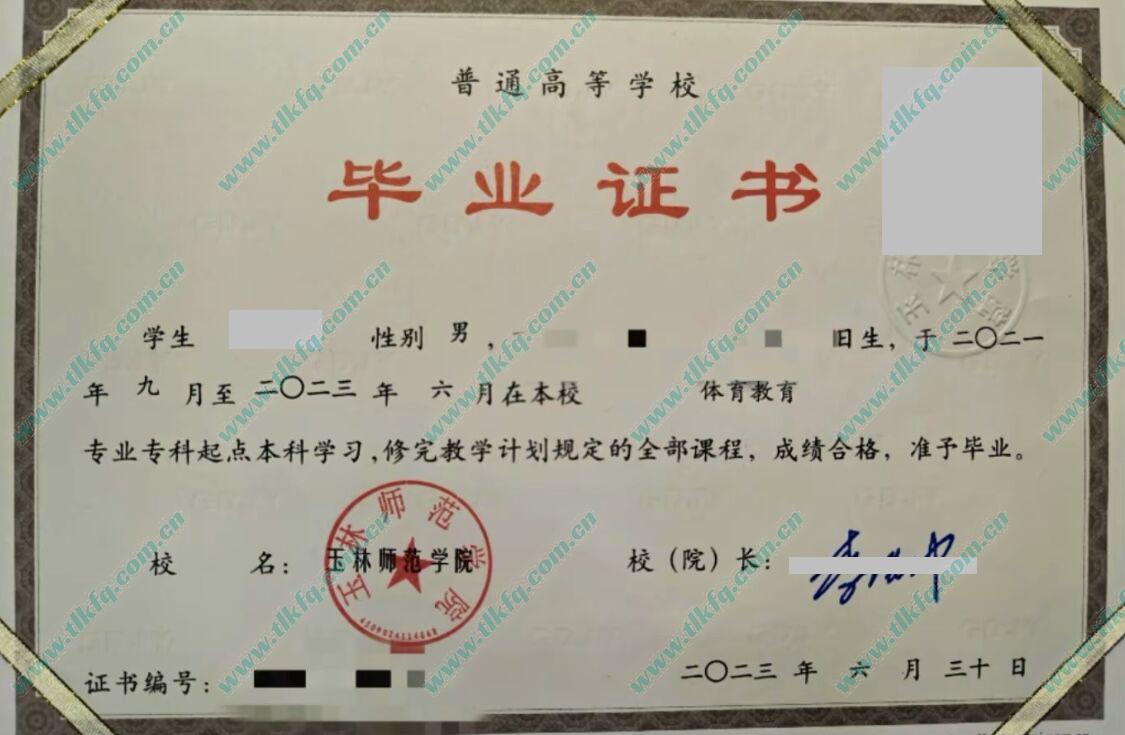 普通高等学校
毕业证书
学生 性别 男， 日生，于 二〇二一
年 九 月至 二〇二三 年 六 月在本校 体育教育
专业专科起点本科学习，修完教学计划规定的全部课程，成绩合格，准予毕业。
校 名： 玉林师范学院 校（院）长：
玉林师范学院
证书编号： 二〇二三 年 六 月 三十 日
www.tlkfq.com.cn